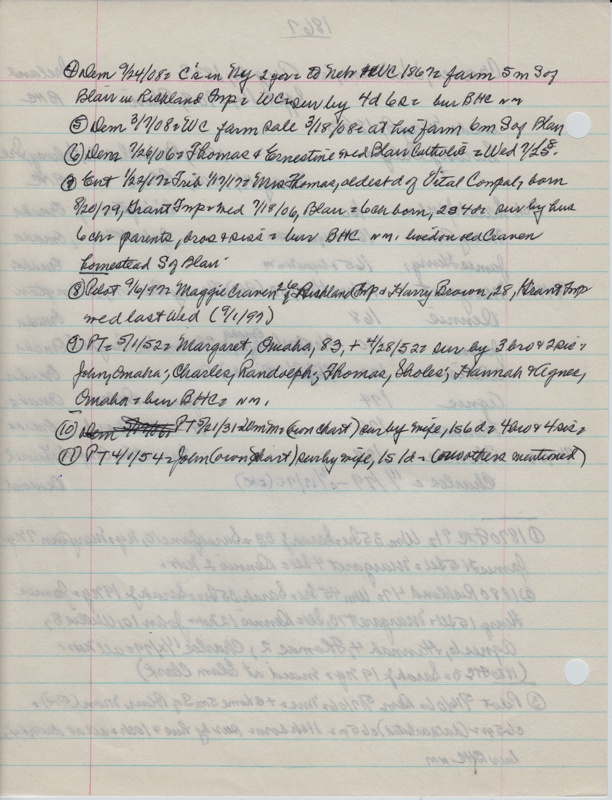 ④ Dem 9/24/08 = C's in Ky 2 yo = to Nebr WC 1867 = farm 5 m S of
Blair in Richland Tnp = WC = sur by 4 d 6 s = bur BHC nm
⑤ Dem 3/7/08 = WC farm sale 3/18/08 = at his farm 6 m S of Blair
⑥ Dem 7/26/06 = Thomas & Ernestine med Blair Catholic = Wed 7/18.
⑦ Ent 1/22/17 = Trib 1/17/17 = Mrs Thomas, oldest d of Vital Compal, born
8/20/79, Grant Tnp = med 7/18/06, Blair = 6 ch born, 2 s 4 d = sur by hus
6 ch = parents, bros & sis's = bur BHC nm. lived on old Craven
homestead S of Blair.
⑧ Pilot 9/6/97 = Maggie Craven 26 of Richland Tnp & Harry Brown, 28, Grant Tnp
med last Wed (9/1/97)
⑨ PT = 5/1/52 = Margaret, Omaha, 83, + 4/28/52 = sur by 3 bro & 2 sis =
John, Omaha; Charles, Randolph; Thomas, Sholes; Hannah & Agnes,
Omaha = bur BHC = nm.
⑩ PT 5/21/31 = Dennis (own chart) sur by wife, 1 s 6 d = 4 bro & 4 sis =
⑪ PT 4/1/54 = John (own chart) sur by wife, 1 s 1 d = (no others mentioned)